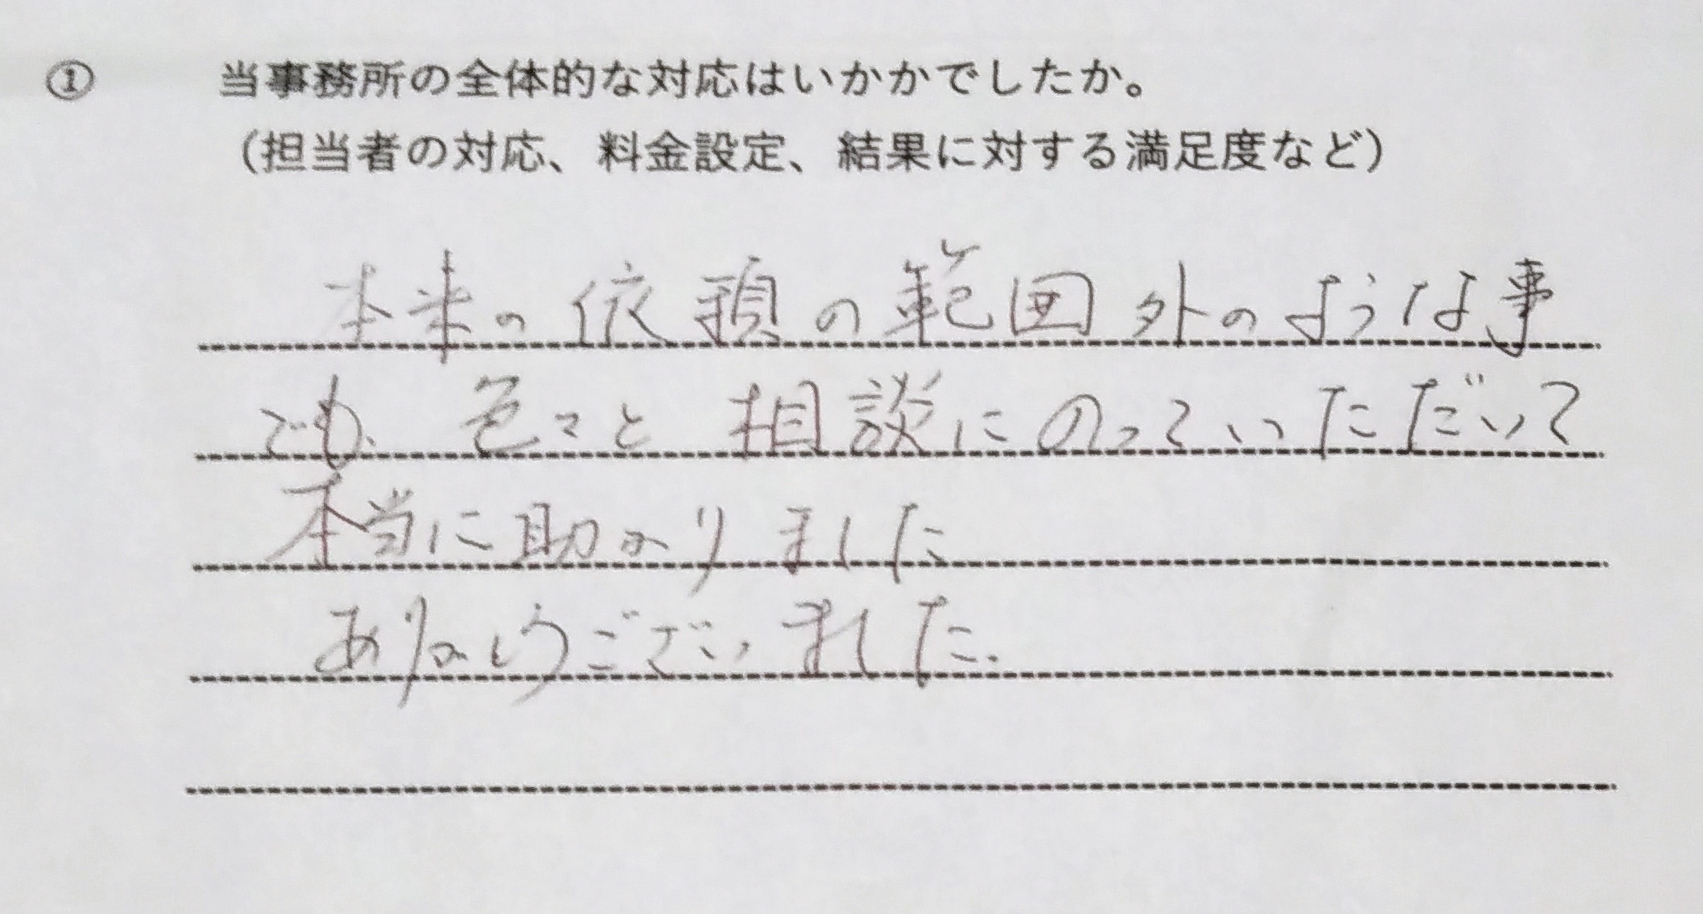 ① 当事務所の全体的な対応はいかかでしたか。
（担当者の対応、料金設定、結果に対する満足度など）
本来の依頼の範囲外のような事
でも、色々と相談にのっていただいて
本当に助かりました
ありがとうございました。